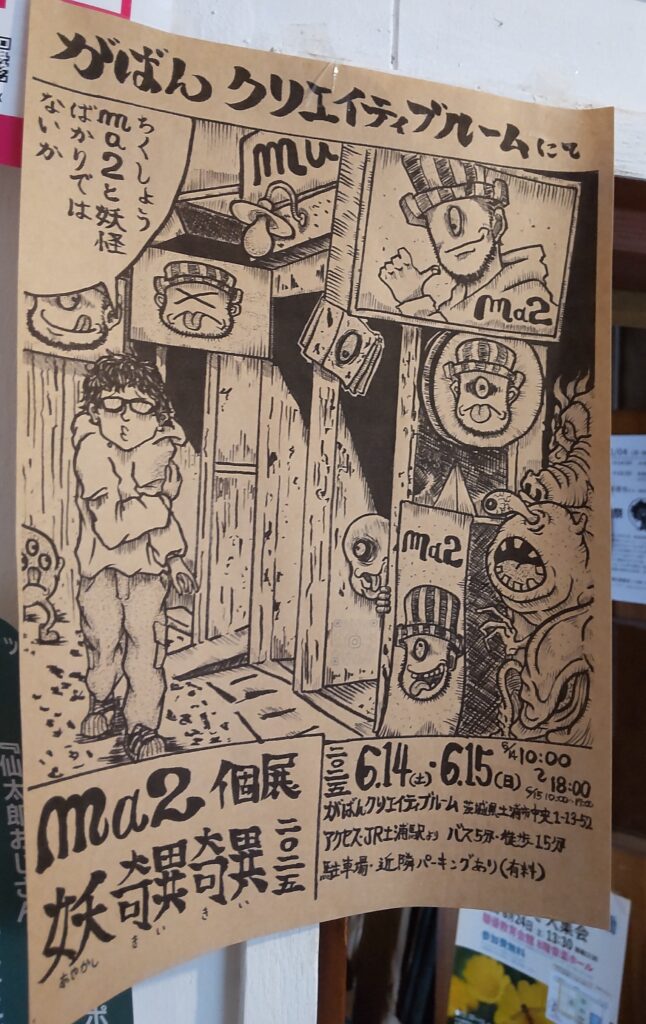 がばん クリエイティブルームにて
ちくしょう
ma2と妖怪
ばかりでは
ないか
mu
ma2
ma2
ma2 個展
妖奇異奇異 二〇二五
あやかし きい きい
二〇二五 6.14(土)・6.15(日) 6/14 10:00 〜 18:00
がばんクリエイティブルーム 茨城県土浦市中央1-13-52
アクセス・JR土浦駅より バス5分・徒歩15分
駐車場・近隣パーキングあり(有料)
『仙太郎おじさん
大集会
13:30
参加費無料